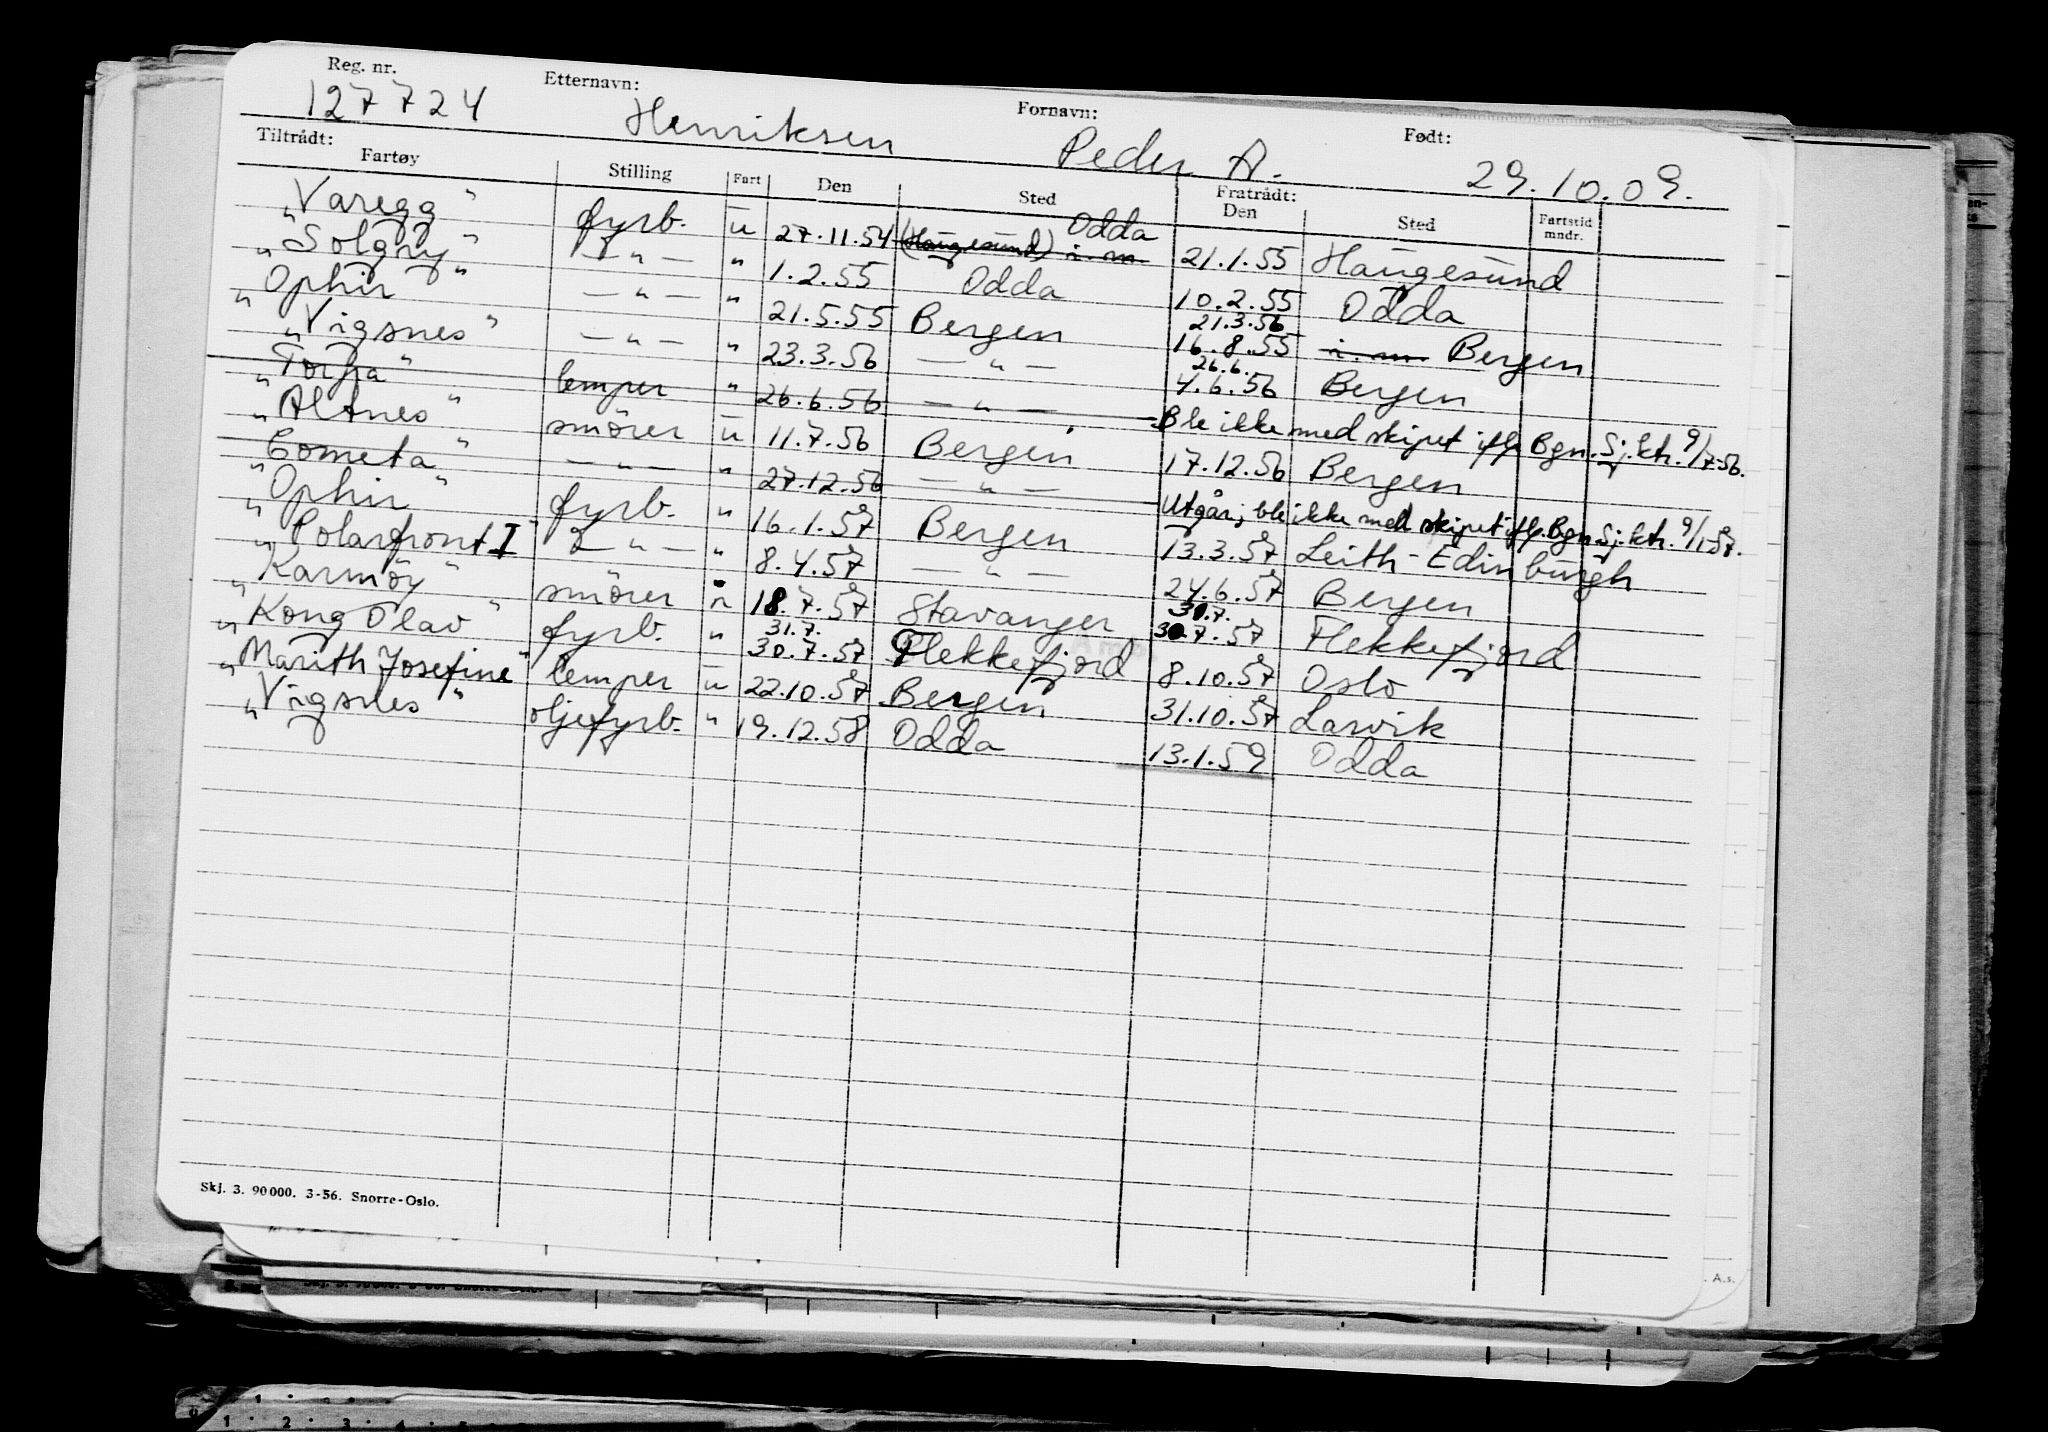 Reg. nr. Etternavn: Fornavn: Født:
127724 Henriksen Peder A. 29.10.09.
Tiltrådt: Fratrådt:
Fartøy Stilling Fart Den Sted Den Sted Fartstid mndr.
"Varegg" fyrb. u 27.11.54 (Haugesund) i. m Odda 21.1.55 Haugesund
"Solgry" — " — " 1.2.55 Odda 10.2.55 Odda
"Ophir" — " — " 21.5.55 Bergen 21.3.56 16.8.55 i. m Bergen
"Vigsnes" — " — " 23.3.56 — " — 26.6. 4.6.56 Bergen
"Torfra" lemper " 26.6.56 — " — Ble ikke med skipet iflg. Bgn. Sj.ktr. 9/7-56.
"Altnes" smörer u 11.7.56 Bergen 17.12.56 Bergen
"Cometa" — " — " 27.12.56 — " — Utgår, ble ikke med skipet iflg. Bgn. Sj.ktr. 9/1-57.
"Ophir" fyrb. " 16.1.57 Bergen 13.3.57 Leith-Edinburgh
"Polarfront I" — " — " 8.4.57 — " — 24.6.57 Bergen
"Karmöy" smörer n 18.7.57 Stavanger 30.7. 30.7.57 Flekkefjord
"Kong Olav" fyrb. " 31.7. 30.7.57 Flekkefjord 8.10.57 Oslo
"Marith Josefine" lemper u 22.10.57 Bergen 31.10.57 Larvik
"Vigsnes" oljefyrb. " 19.12.58 Odda 13.1.59 Odda
Skj. 3. 90000. 3-56. Snorre-Oslo.
. A.s.
1 2 3 4 5